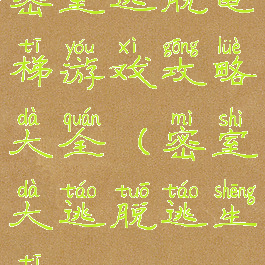 密室逃脱
tī yóu xì gōng lüè
梯游戏攻略
dà quán mì shì
大全（密室
dà táo tuō táo shēng
大逃脱逃生
tī